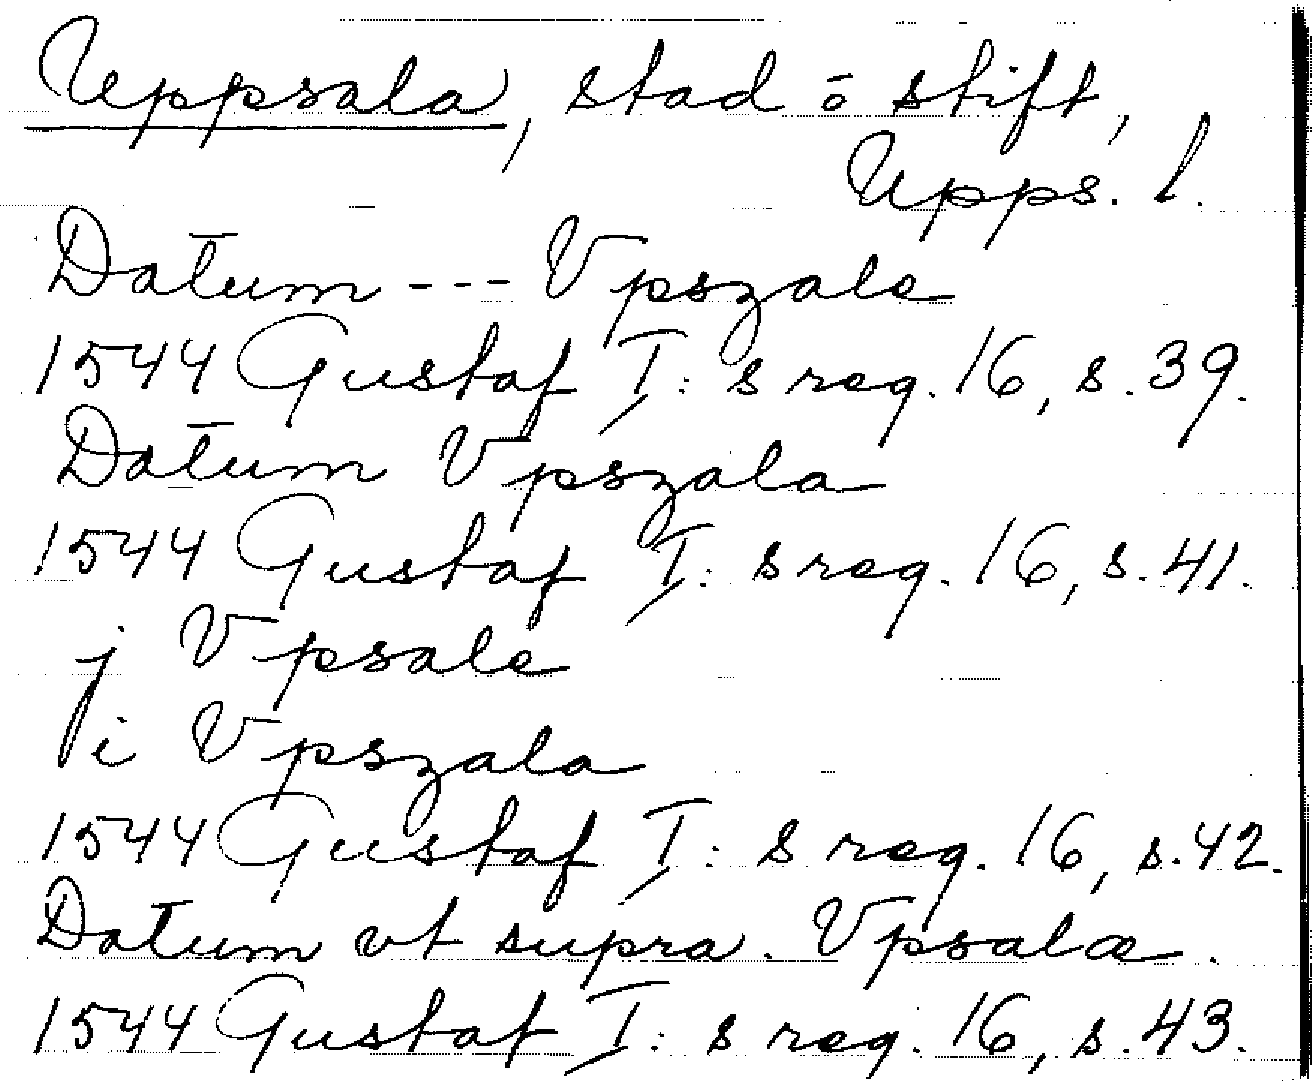 Uppsala, stad o stift,
Upps. l.
Datum --- Vpszale
1544 Gustaf I: s reg. 16, s. 39.
Datum Vpszala
1544 Gustaf I: s reg. 16, s. 41.
j Vpsale
i Vpszala
1544 Gustaf I: s reg. 16, s. 42.
Datum vt supra. Vpsalæ.
1544 Gustaf I: s reg. 16, s. 43.